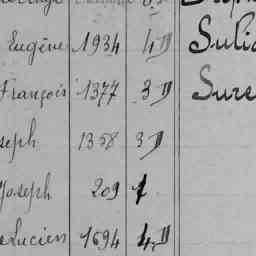 Eugène 1934 4 D Sulia
François 1377 3 D Sure
seph 1358 3 D
Joseph 209 1
Lucien 1694 4 D